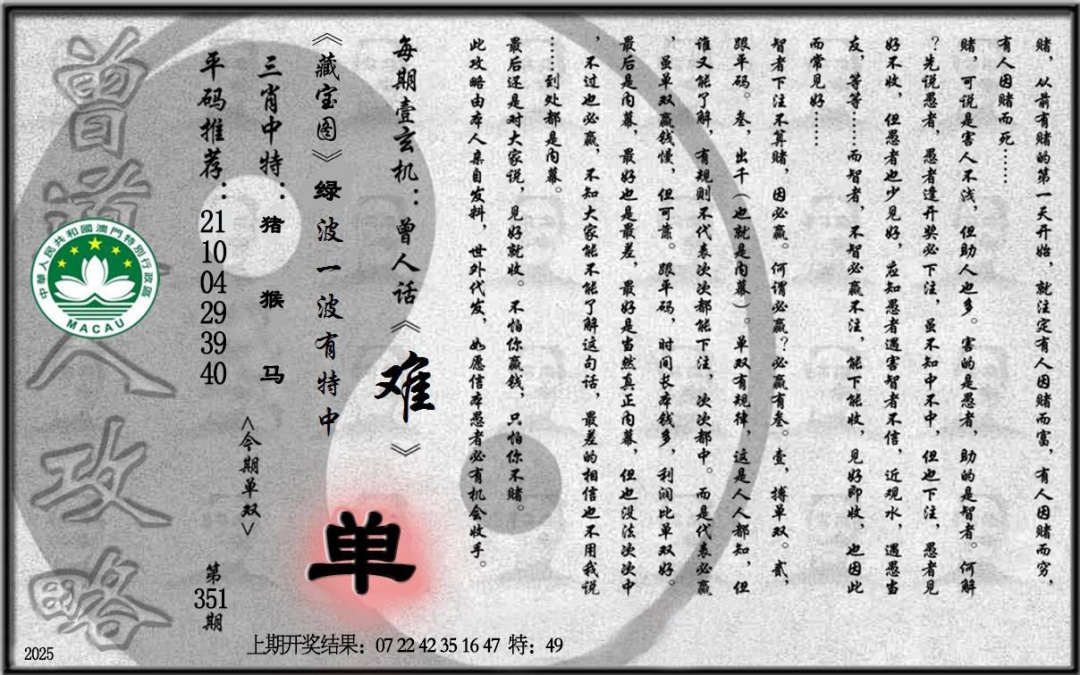 赌，从前有赌的第一天开始，就注定有人因赌而富，有人因赌而穷，
有人因赌而死……
赌，可说是害人不浅，但助人也多。害的是愚者，助的是智者。何解
？先说愚者，愚者逢开奖必下注，虽不知中不中，但也下注，愚者见
好不收，但愚者也少见好，应知愚者遇害智者不信，近观水，遇愚当
友，等等……而智者，不智必赢不注，能下能收，见好即收，也因此
而常见好……
智者下注不算赌，因必赢。何谓必赢？必赢有叁。壹，搏单双。贰，
跟单码。叁，出千（也就是内幕）。单双有规律，这是人人都知，但
谁又能了解，有规则不代表次次都能下注，次次都中。而是代表必赢
，虽单双赢钱慢，但可靠。跟单码，时间长本钱多，利润比单双好。
最后是内幕，最好也是最差，最好是当然真正内幕，但也没法次次中
，不过也必赢，不知大家能不能了解这句话，最差的相信也不用我说
……到处都是内幕。
最后还是对大家说，见好就收。不怕你赢钱，只怕你不赌。
此攻略由本人亲自发料，世外代发，如愿信本愚者必有机会收手。
每期壹玄机：曾人话《难》
《藏宝图》绿波一波有特中
三肖中特：猪 猴 马
<今期单双>
单
平码推荐：21 10 04 29 39 40
第351期
曾道人攻略
中華人民共和國澳門特別行政區
MACAU
2025
上期开奖结果：07 22 42 35 16 47 特：49